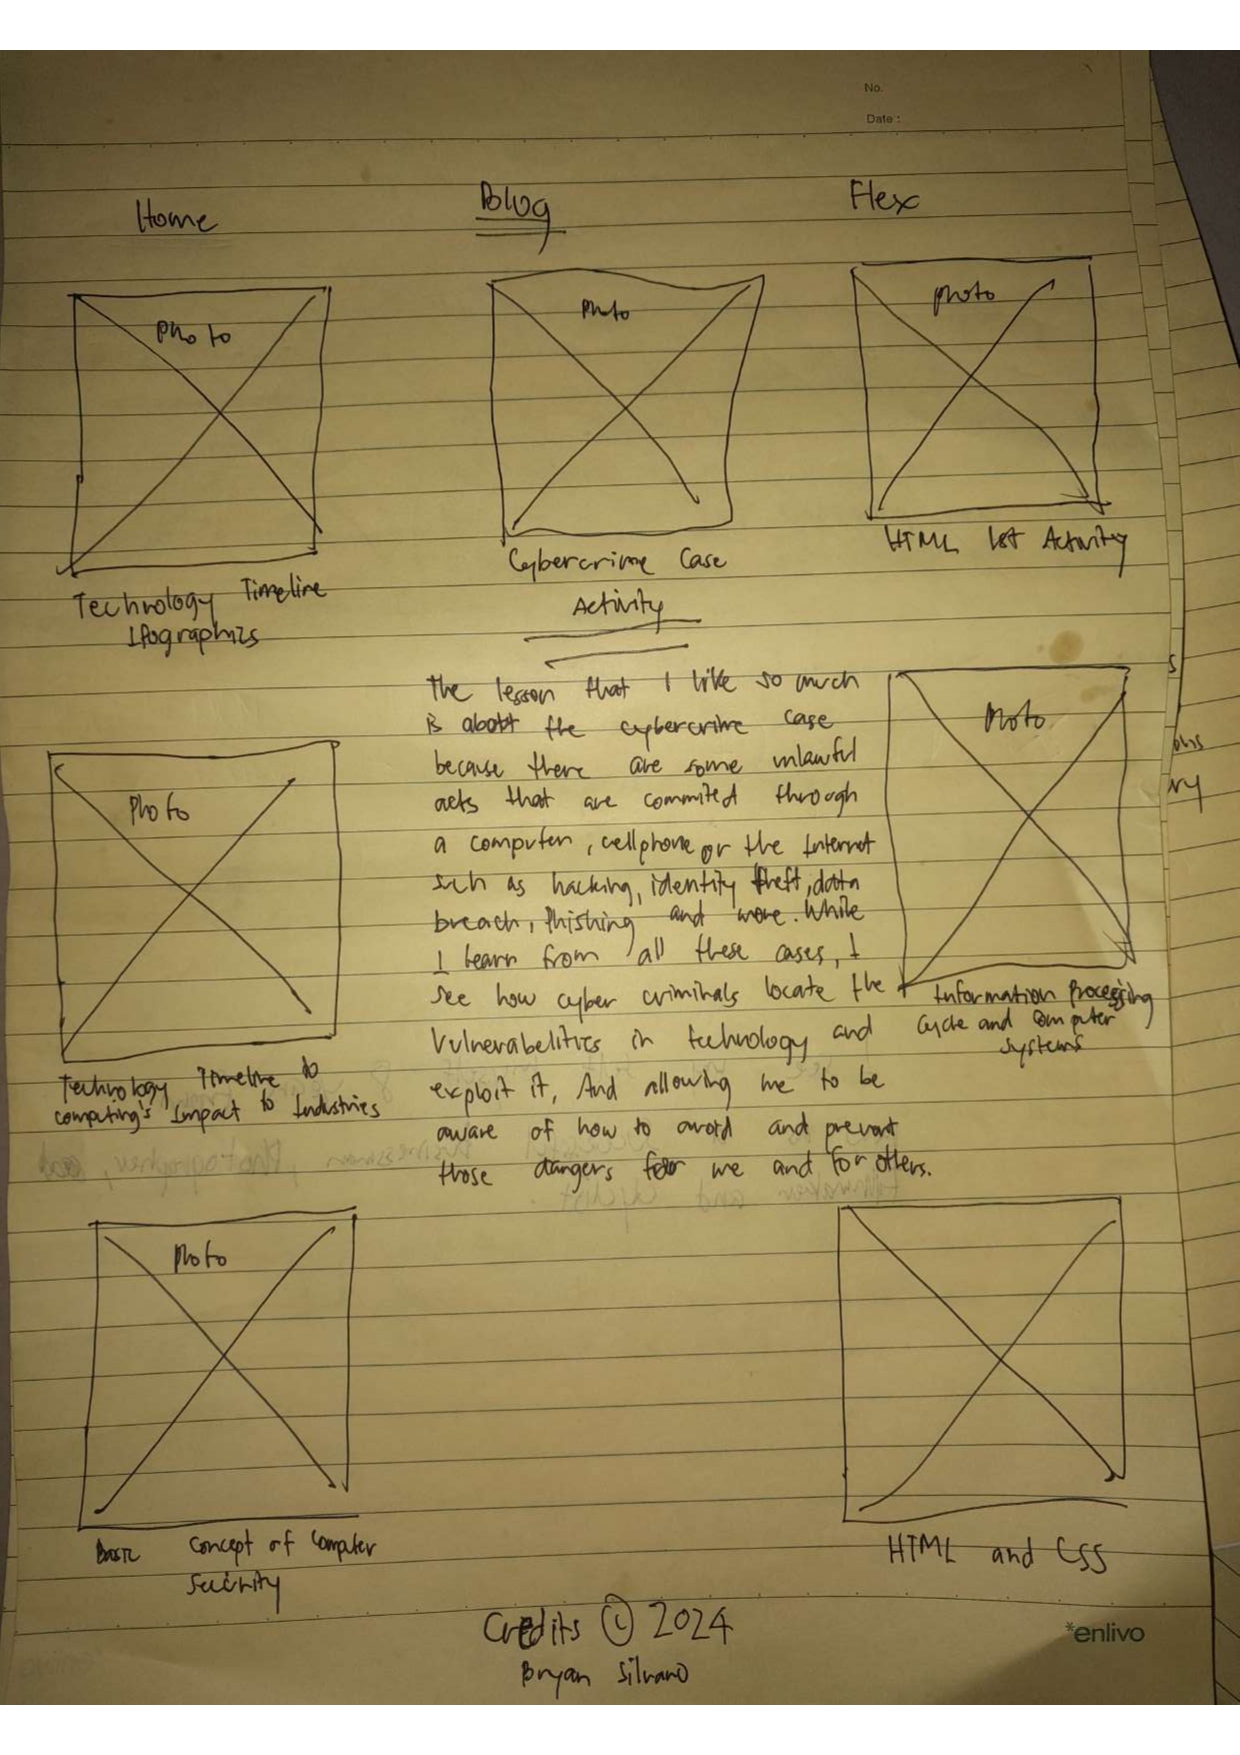 No.
Date :
Home Blog Flex
Photo Photo Photo
Technology Timeline
Ifographics
Cybercrime Case
Activity
HTML 1st Activity
The lesson that I like so much
is about the cybercrime case
because there are some unlawful
acts that are commited through
a computer, cellphone or the Internet
such as hacking, identity theft, data
breach, Phishing and more. While
I learn from all these cases, I
see how cyber criminals locate the
Vulnerabelities in technology and
exploit it, And allowing me to be
aware of how to avoid and prevent
those dangers for me and for others.
Photo
Technology Timeline to
computing's Impact to Industries
Photo
Information Processing
Cycle and Computer
Systems
Photo
Basic Concept of Computer
Security
HTML and CSS
Credits © 2024
Bryan Silvano
*enlivo